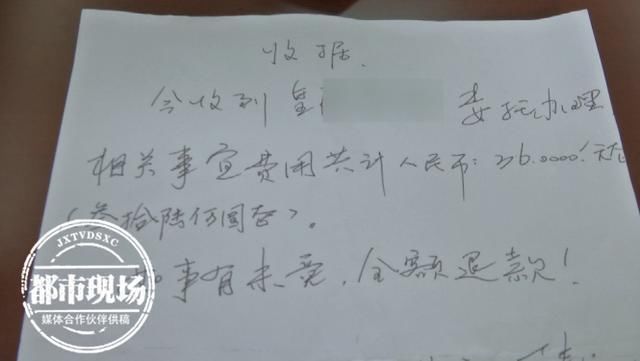 收据.
今收到皇 委托办理
相关事宜费用共计人民币: 36.0000!元
(叁拾陆万圆整)。
如事有未竟,全额退款!
JXTVDSXC
都市现场
媒体合作伙伴供稿